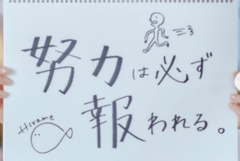 努力は必ず
Hirame
報われる。